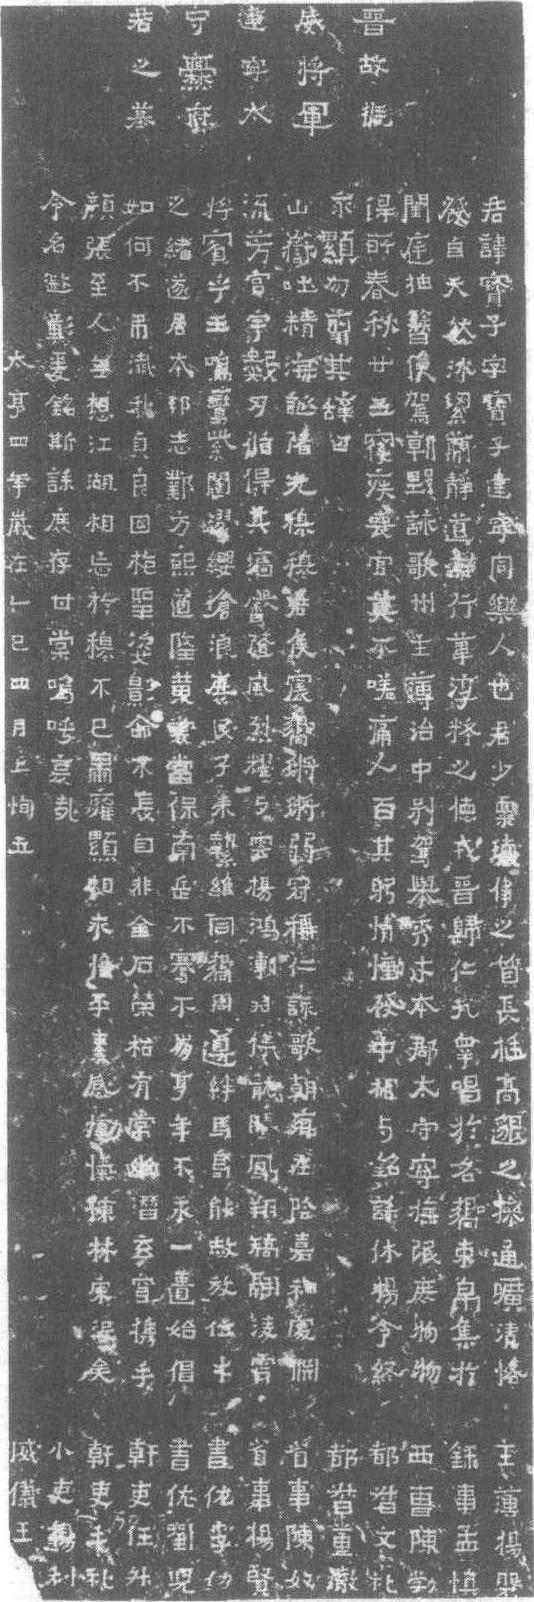 晉故振
威將軍
建寧太
守爨府
君之墓
君諱寶子字寶子建寧同樂人也君少稟瓌偉之質長挺高邈之操通曠清恪
發自天然冰絜簡靜道兼行葦淳粹之德戎晉歸仁九皋唱於名響束帛集於
閨庭抽簪俟駕朝野詠歌州主簿治中別駕舉秀才本郡太守寧撫氓庶物物
得所春秋廿五寢疾喪官莫不嗟痛人百其躬情慟發中相与銘誄休揚令終
永顯勿翦其辭曰
山嶽吐精海誕陼光穆穆君侯震響鏘鏘弱冠稱仁詠歌朝鄉在陰嘉和處淵
流芳宮宇數仞循得其墻馨隨風烈耀与雲揚鴻漸羽儀龍騰鳳翔矯翮凌霄
將賓乎王鳴鸞紫闥濯纓滄浪庶民子來縶維同響周遵絆馬曷能赦放位才
之緒遂居本邦志鄴方熙道隆黃裳當保南岳不騫不崩享年不永一匱始倡
如何不弔殲我貞良回抱聖姿影命不長自非金石榮枯有常幽潛玄穹攜手
顏張至人無想江湖相忘於穆不已肅雍顯相永惟平素感慟忾慷林宗沒矣
令名遐彰爰銘斯誄庶存甘棠嗚呼哀哉
太亨四年歲在乙巳四月上恂立
主簿楊磐
錄事孟慎
西曹陳勃
都督文礼
都督董徹
省事陳奴
省事楊賢
書佐李仂
書佐劉兒
幹吏任升
幹吏毛礼
小吏楊利
威儀王